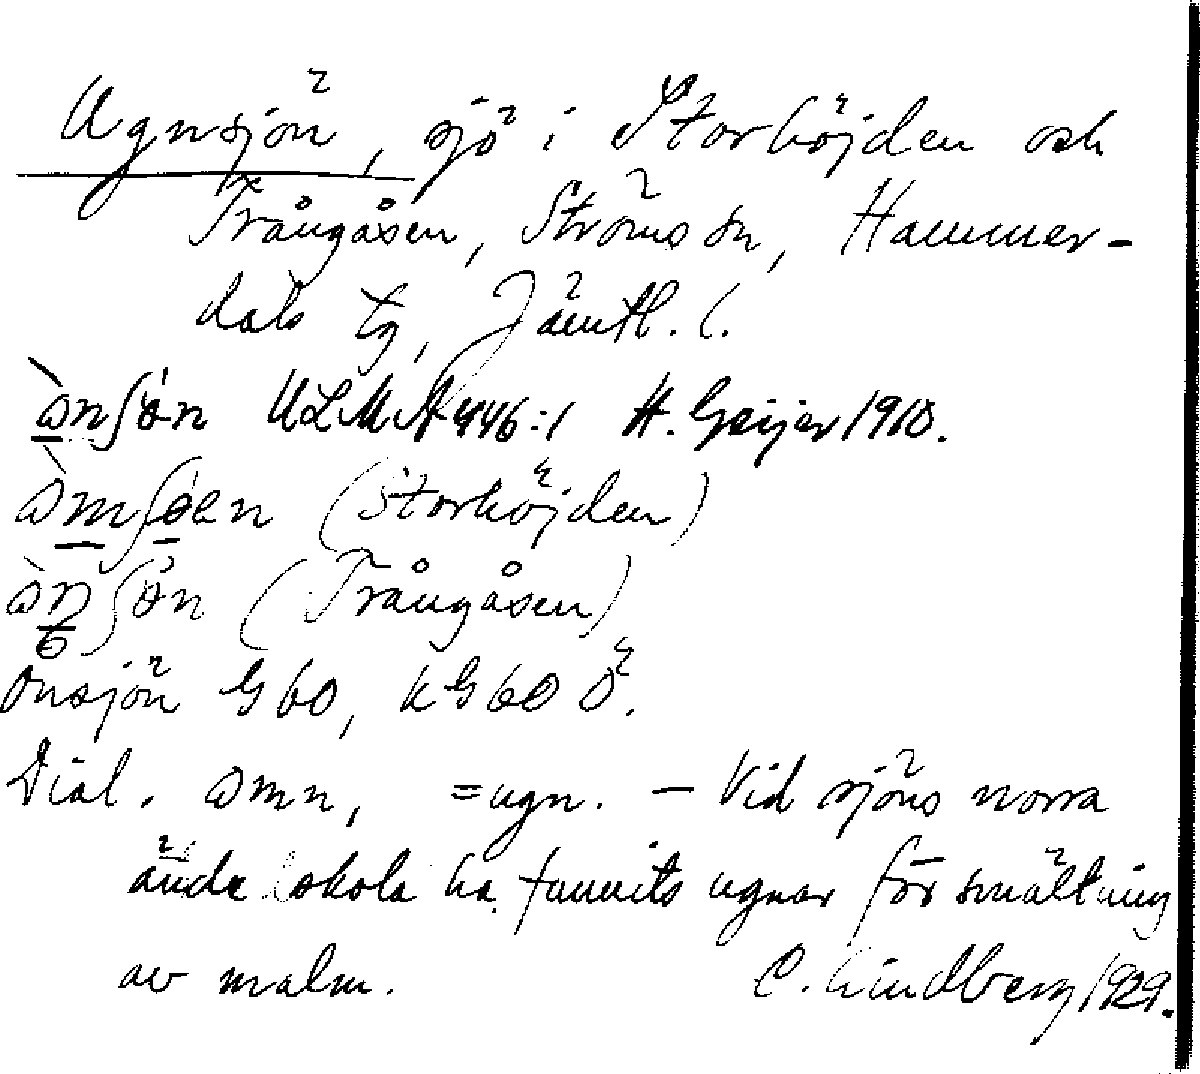 Ugnsjön, sjö i Storhöjden och
Trångåsen, Ströms sn, Hammer-
dals tg, Jämtl. l.
ὼnʃön ULMA 446:1 H. Geijer 1910.
(Storhöjden)
(Trångåsen)
Onsjön G 60, kG 60 Ö.
Dial. omn, = ugn. – Vid sjöns norra
ände skola ha funnits ugnar för smältning
av malm. C. Lindberg 1929.